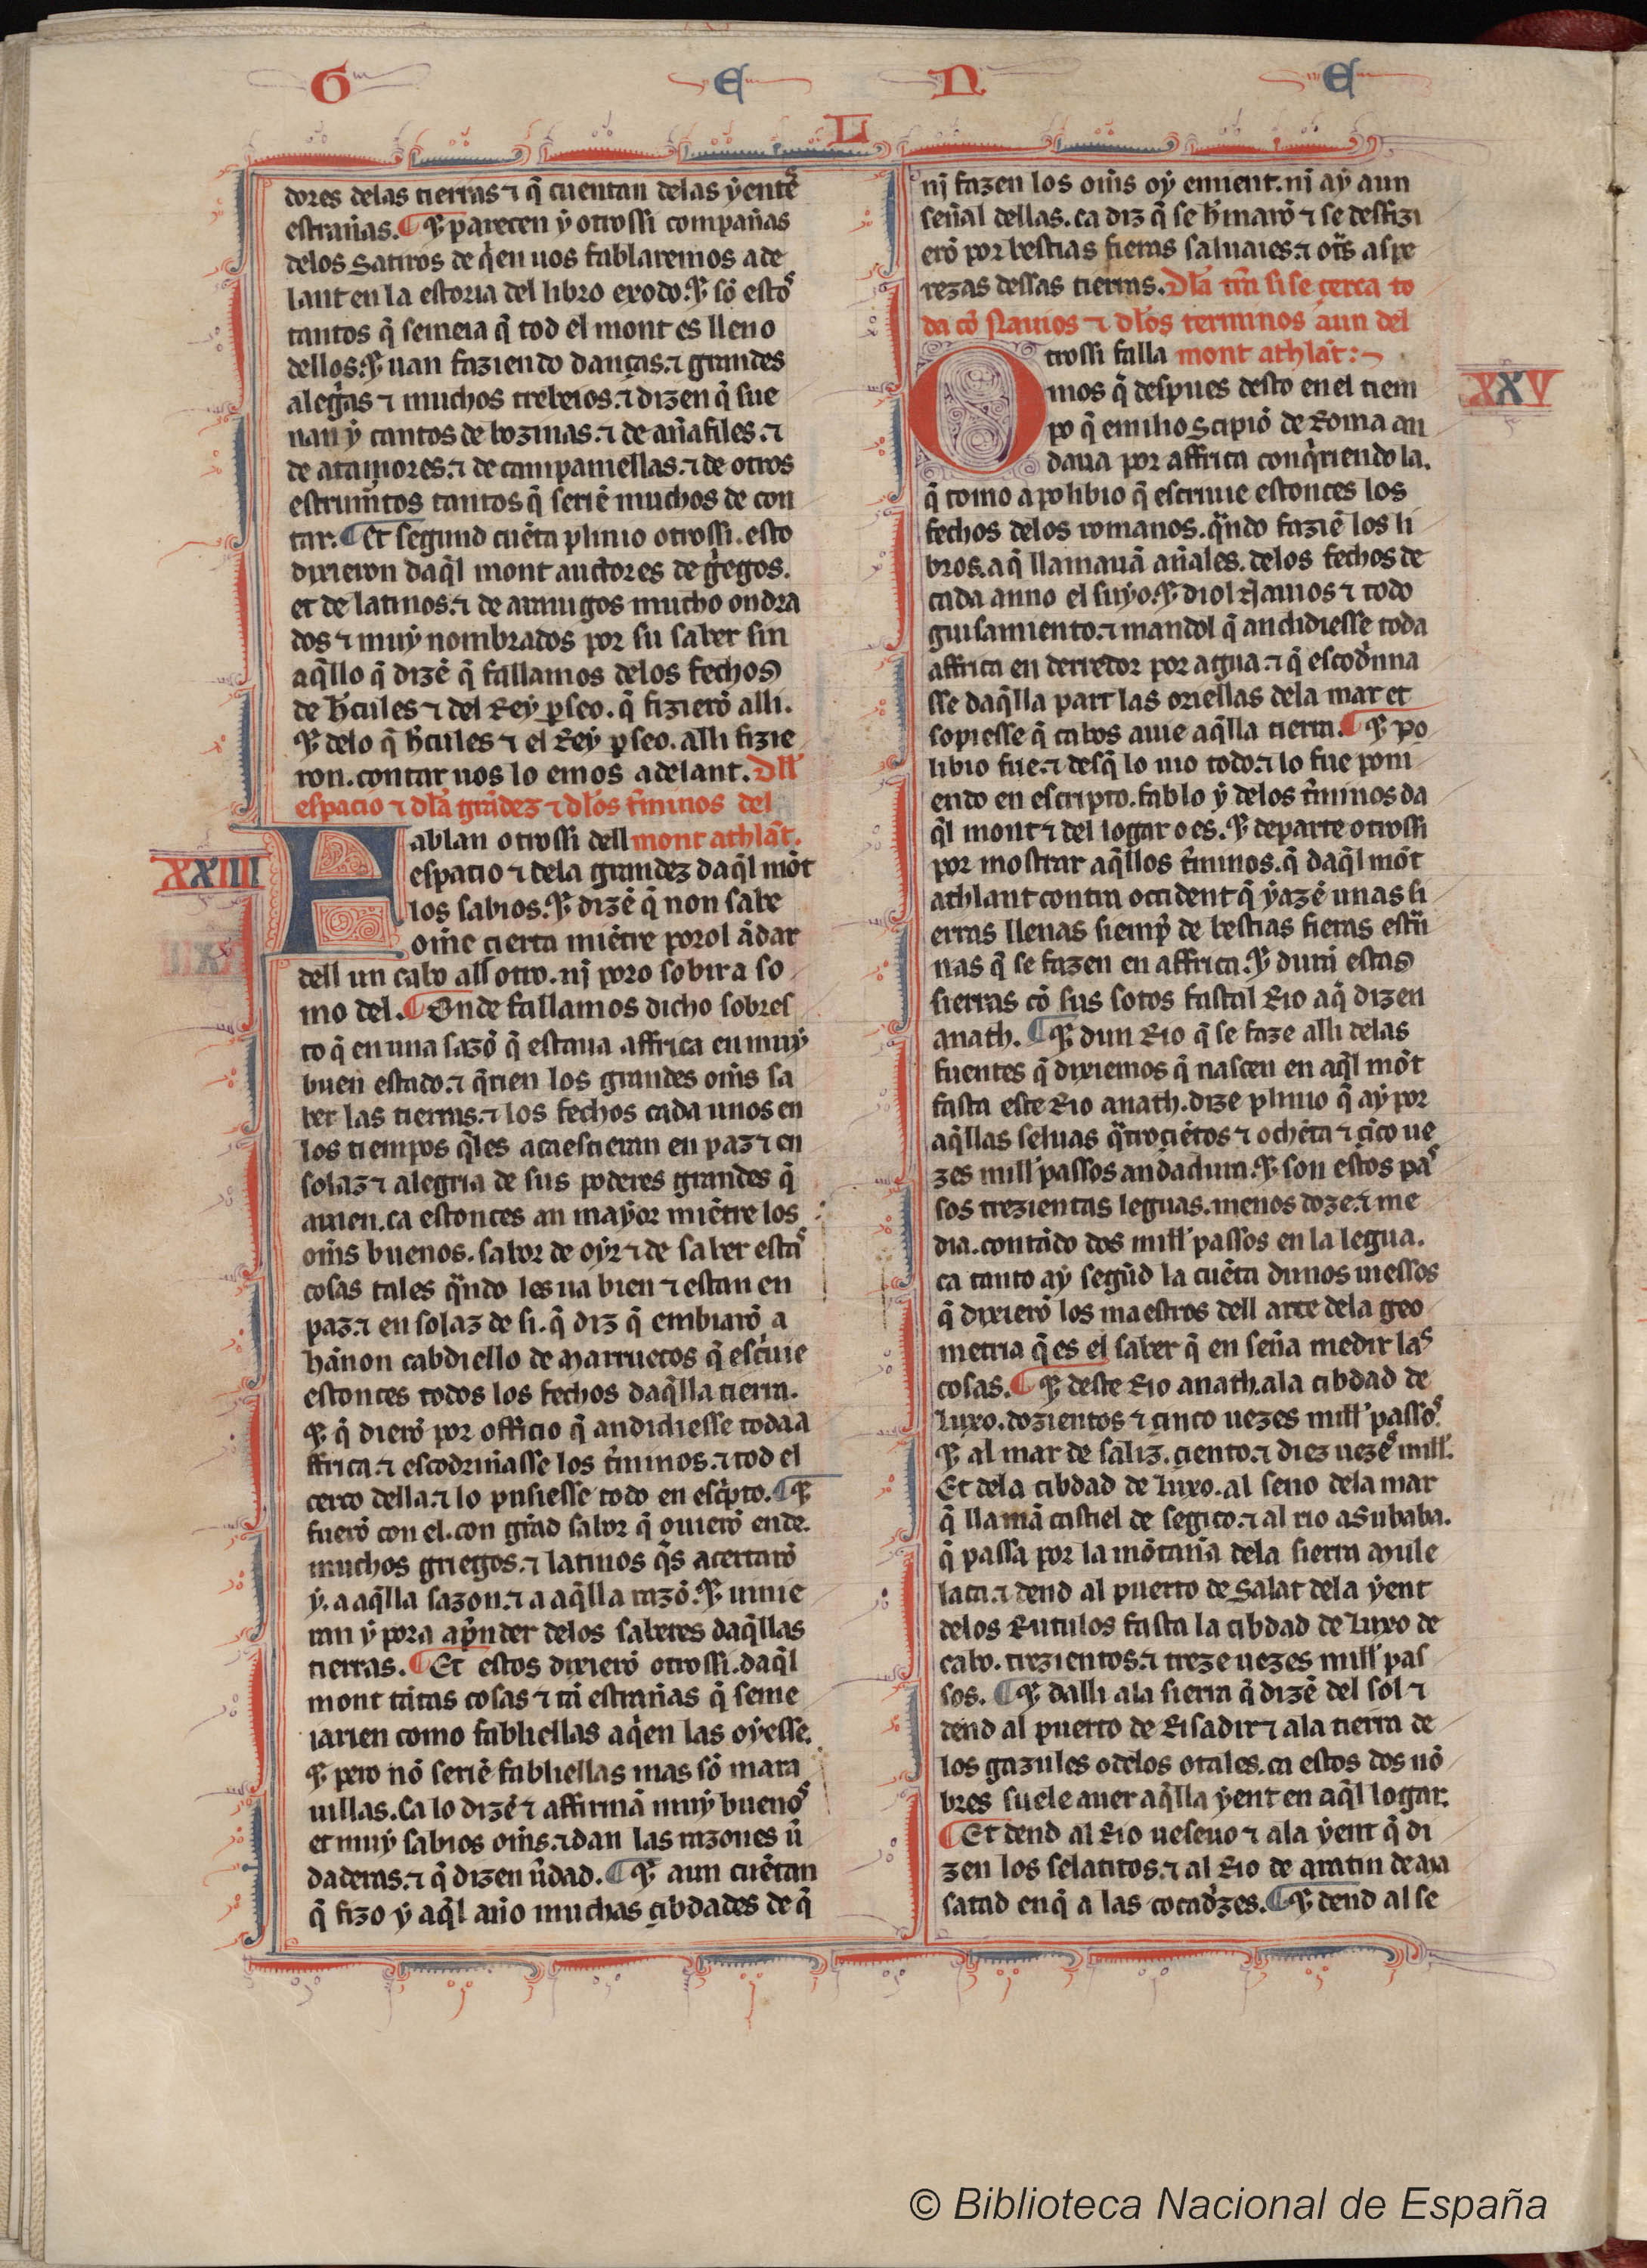 G E N E
L
dores delas tierras ⁊ q̃ cuentan delas yente^s
estrañas. ¶ ⁊ parecen y otrossi compañas
delos Satiros de q̃en uos fablaremos ade
lant en la estoria del libro exodo. ⁊ sõ esto^s
tantos q̃ semeia q̃ tod el mont es lleno
dellos. ⁊ uan faziendo danças. ⁊ grandes
alegr̃as ⁊ muchos trebeios. ⁊ dizen q̃ sue
nan y tantos de bozinas. ⁊ de añafiles. ⁊
de atamores. ⁊ de campaniellas. ⁊ de otros
estrum̃tos tantos q̃ seriẽ muchos de con
tar. ¶ Et segund cuẽta plinio otrossi. esto
dixieron daq̃l mont auctores de g̃egos.
et de latinos. ⁊ de armigos mucho ondra
dos ⁊ muy nombrados por su saber sin
aq̃llo q̃ dizẽ q̃ fallamos delos fechos
de h̃cules ⁊ del Rey p̱seo. q̃ fizierõ alli.
⁊ delo q̃ h̃cules ⁊ el Rey p̱seo. alli fizie
ron. contar uos lo emos adelant. Dll̃
espacio ⁊ dl̃a grãdez ⁊ dl̃os t̃minos del
XXIIII
Fablan otrossi dell mont athlãt.
espacio ⁊ dela grandez daq̃l mõt
los sabios. ⁊ dizẽ q̃ non sabe
om̃e cierta miẽtre porol ãdar
dell un cabo all otro. nj poro sobir a so
mo del. ¶ Onde fallamos dicho sobres
to q̃ en una sazõ q̃ estaua affrica en muy
buen estado. ⁊ q̃rien los grandes om̃s sa
ber las tierras. ⁊ los fechos cada unos en
los tiempos q̃les acaescieran en paz ⁊ en
solaz ⁊ alegria de sus poderes grandes q̃
auien. ca estonces an mayor miẽtre los
om̃s buenos. sabor de oyr ⁊ de saber esta^s
cosas tales q̃ndo les ua bien ⁊ estan en
paz. ⁊ en solaz de si. q̃ diz q̃ embiarõ a
hãnon cabdiello de Marruecos q̃ esc̃uie
estonces todos los fechos daq̃lla tierra.
⁊ q̃ dierõ por officio q̃ andidiesse toda a
ffrica. ⁊ escodriñasse los t̃minos. ⁊ tod el
cerco della. ⁊ lo pusiesse todo en esc̃pto. ¶ ⁊
fuerõ con el. con grãd sabor q̃ ouierõ ende.
muchos griegos. ⁊ latinos q̃s acertarõ
y. a aq̃lla sazon. ⁊ a aq̃lla razõ. ⁊ uinie
ran y pora ap̃nder delos saberes daq̃llas
tierras. ¶ Et estos dixierõ otrossi. daq̃l
mont tãtas cosas ⁊ tã estrañas q̃ seme
iarien como fabliellas aq̃en las oyesse.
⁊ pero nõ seriẽ fabliellas mas sõ mara
uillas. Ca lo dizẽ ⁊ affirmã muy bueno^s
et muy sabios om̃s. ⁊ dan las razones ũ
daderas. ⁊ q̃ dizen ũdad. ¶ ⁊ aun cuẽtan
q̃ fizo y aq̃l año muchas cibdades de q̃
nj fazen los om̃s oy enment. nj ay aun
señal dellas. ca diz q̃ se h̃marõ ⁊ se desfizi
erõ por bestias fieras saluaies. ⁊ ot̃s aspe
rezas dessas tierras. Dl̃a t̃rra si se cerca to
da cõ Nauios ⁊ dl̃os terminos aun del
Otrossi falla mont athlãt:
XXV
mos q̃ despues desto en el tiem
po q̃ emilio Scipiõ de Roma an
daua por affrica conq̃riendo la.
q̃ tomo a polibio q̃ escriuie estonces los
fechos delos romanos. q̃ndo faziẽ los li
bros. aq̃ llamauã añales. delos fechos de
cada anno el suyo. ⁊ diol Nauios ⁊ todo
guisamiento. ⁊ mandol q̃ andidiesse toda
affrica en derredor por agua. ⁊ q̃ escod̃nna
sse daq̃lla part las oriellas dela mar et
sopiesse q̃ cabos auie aq̃lla tierra. ¶ ⁊ po
libio fue. ⁊ desq̃ lo uio todo. ⁊ lo fue poni
endo en escripto. fablo y delos t̃minos da
q̃l mont ⁊ del logar o es. ⁊ departe otrossi
por mostrar aq̃llos t̃minos. q̃ daq̃l mõt
athlant contra occident q̃ yazẽ unas si
erras llenas siemp̃ de bestias fieras estr̃
nas q̃ se fazen en affrica. ⁊ durã estas
sierras cõ sus sotos fastal Rio aq̃ dizen
anath. ¶ ⁊ dun Rio q̃ se faze alli delas
fuentes q̃ dixiemos q̃ nascen en aq̃l mõt
fasta este Rio anath. dize plinio q̃ ay por
aq̃llas seluas q̃trociẽtos ⁊ ochẽta ⁊ cĩco ue
zes mill passos andadura. ⁊ son estos pa^s
sos trezientas leguas. menos doze. ⁊ me
dia. contãdo dos mill passos en la legua.
ca tanto ay segũd la cuẽta dunos uessos
q̃ dixierõ los maestros dell arte dela geo
metria q̃ es el saber q̃ enseña medir la^s
cosas. ¶ ⁊ deste Rio anath. ala cibdad de
Luxo. dozientos ⁊ cinco uezes mill passo^s.
⁊ al mar de saliz. ciento. ⁊ diez ueze^s mill.
Et dela cibdad de Luxo. al seno dela mar
q̃ llamã castiel de segico. ⁊ al rio aSubaba.
q̃ passa por la mõtaña dela sierra Mule
laca. ⁊ dend al puerto de Salat dela yent
delos Rutulos fasta la cibdad de Luxo de
cabo. trezientos. ⁊ treze uezes mill pas
sos. ¶ ⁊ dalli ala sierra q̃ dizẽ del sol ⁊
dend al puerto de Risadir ⁊ ala tierra de
los gazules o delos otales. ca estos dos nõ
bres suele auer aq̃lla yent en aq̃l logar.
¶ Et dend al Rio ueseuo ⁊ ala yent q̃ di
zen los selatitos. ⁊ al Rio de aratin de Ma
satad en q̃ a las cocad̃zes. ¶ ⁊ dend al se
© Biblioteca Nacional de España